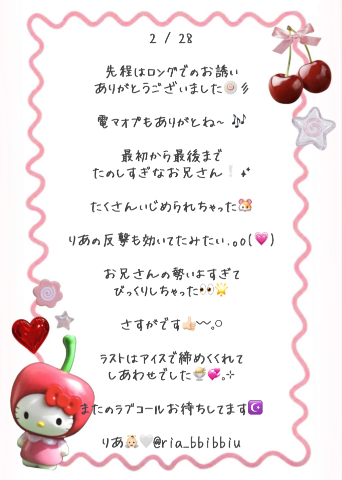 2 / 28
先程はロングでのお誘い
ありがとうございました🍥彡
電マオプもありがとね~ 🎶
最初から最後まで
たのしすぎなお兄さん❕✨
たくさんいじめられちゃった🐹
りあの反撃も効いてたみたい.ｏ○(💗)
お兄さんの勢いよすぎて
びっくりしちゃった👀🌟
さすがです👍🏻〰︎｡○
ラストはアイスで締めくくれて
しあわせでした🍨💞｡⊹
またのラブコールお待ちしてます☪️
りあ👶🏻🤍@ria_bbibbiu